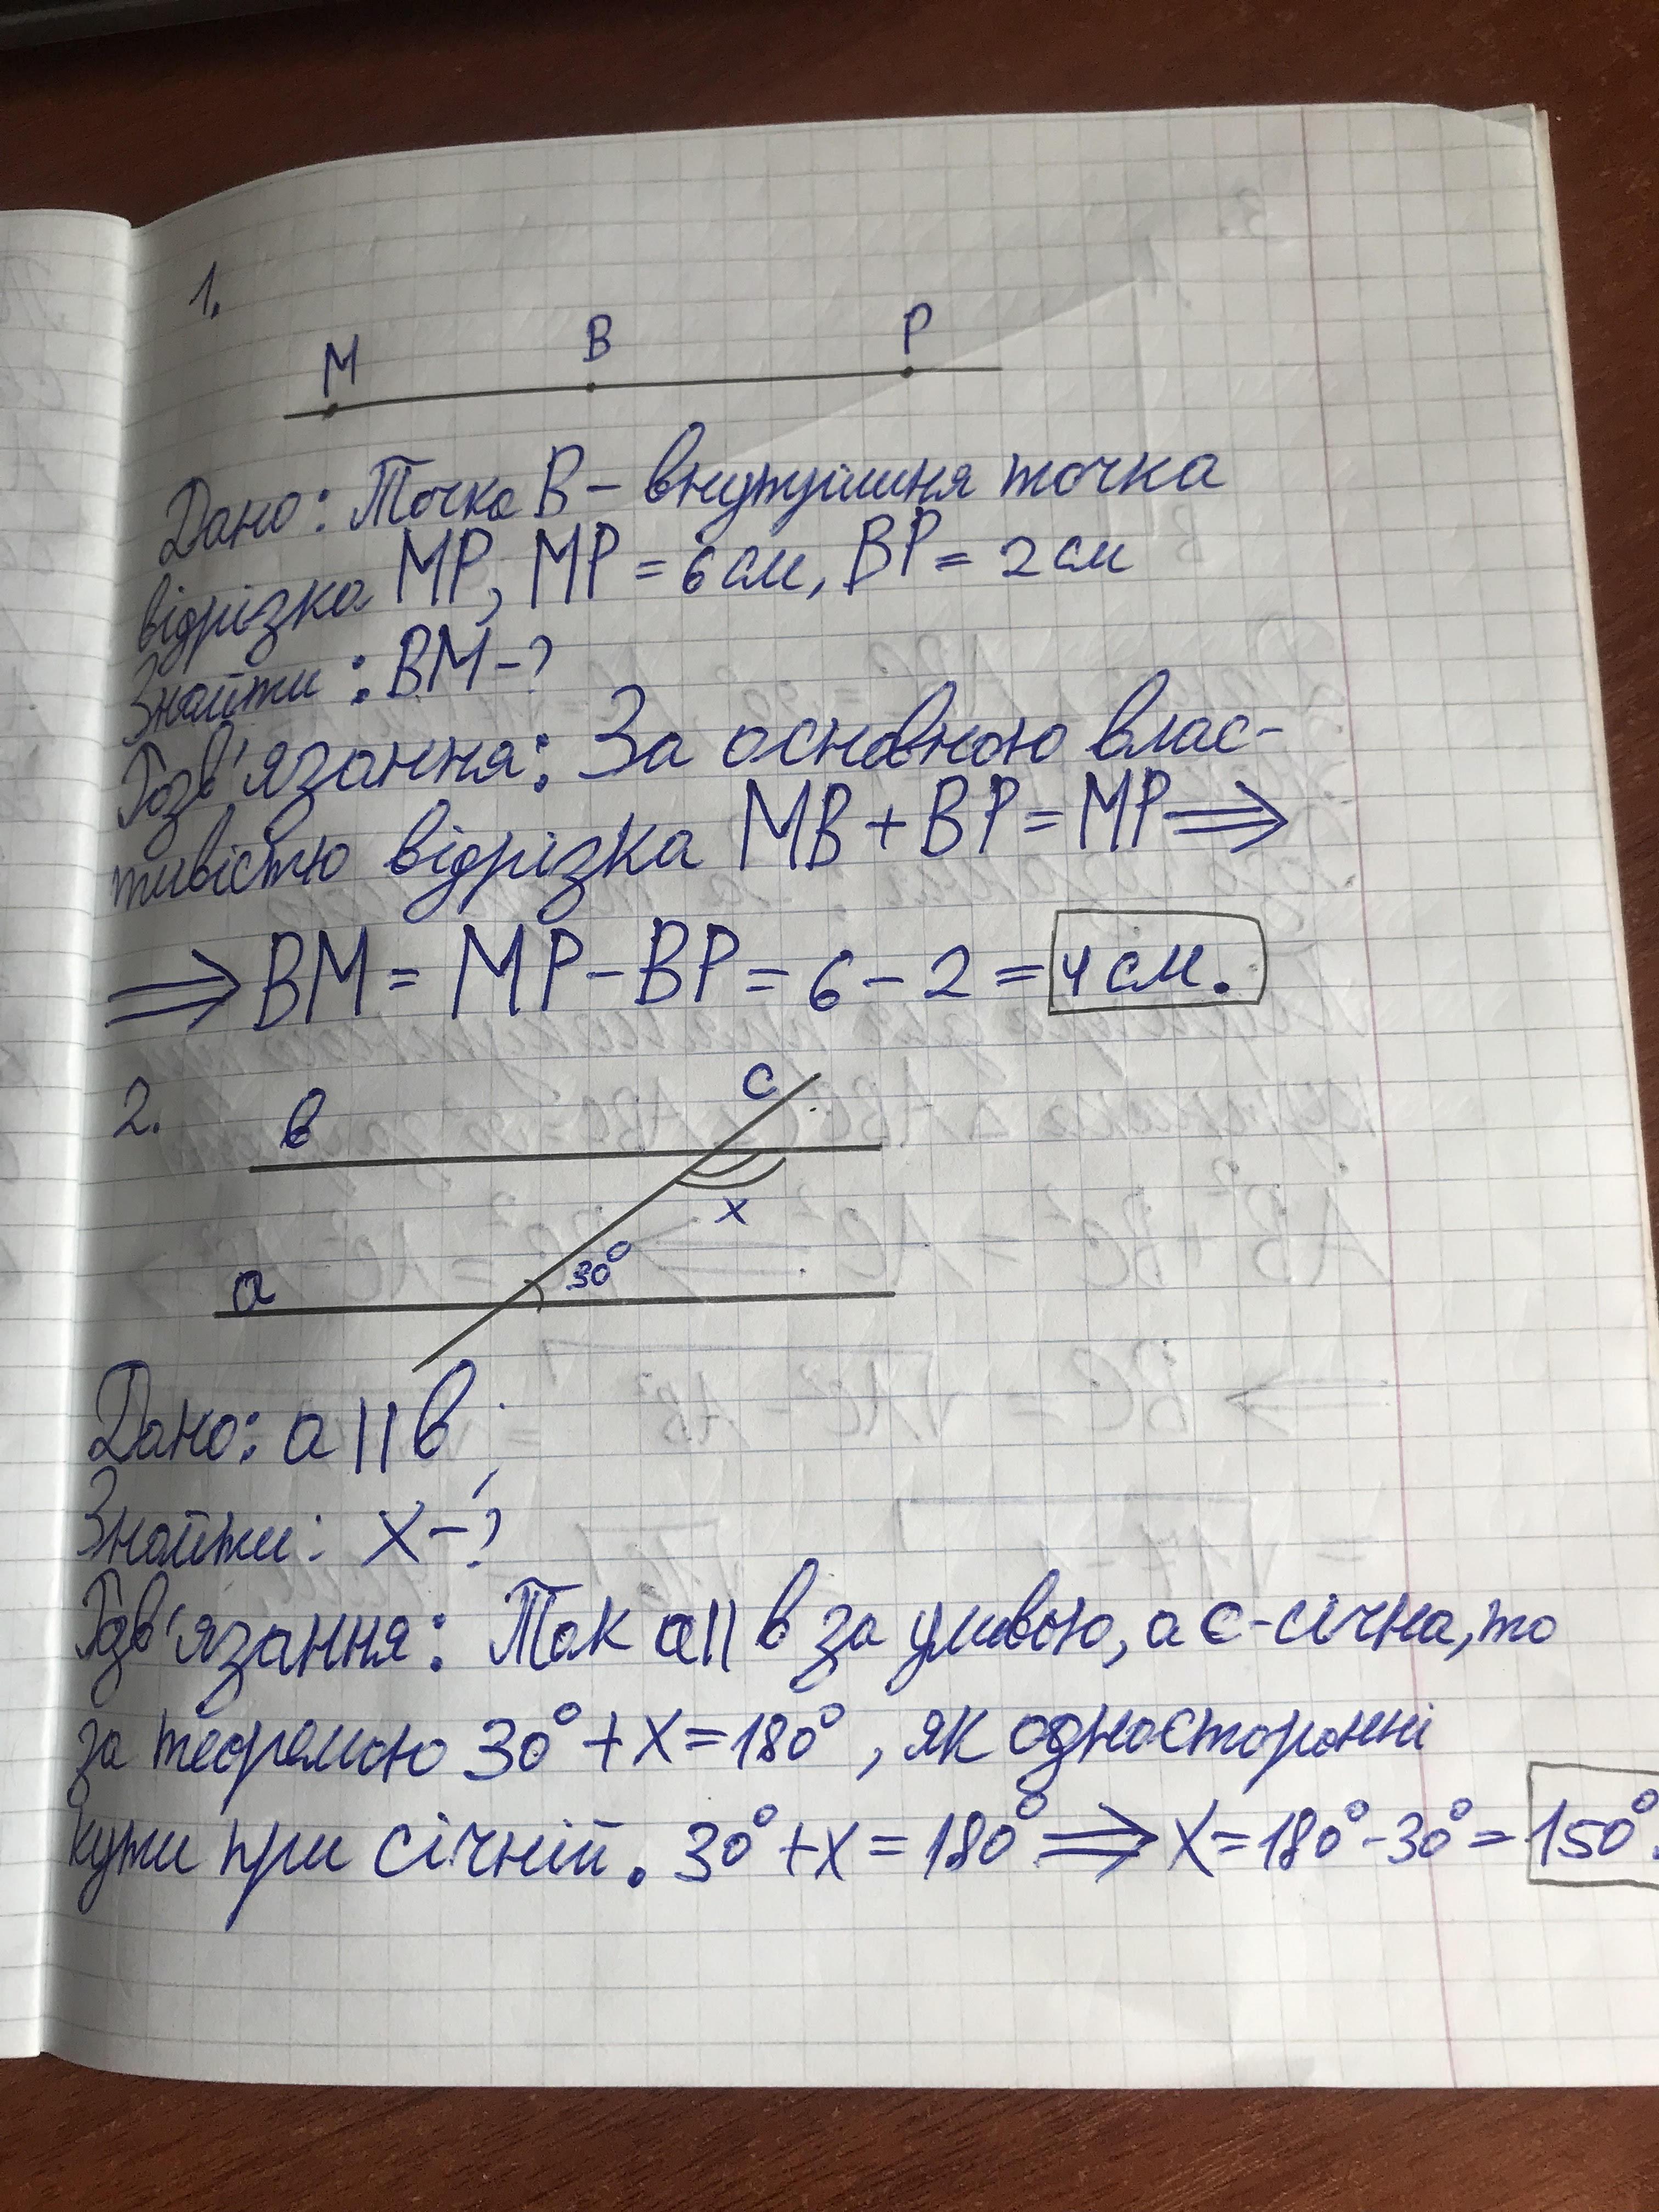 1.
М В Р
Дано: Точка В – внутрішня точка
відрізка МР, МР = 6 см, ВР = 2 см
Знайти: ВМ – ?
Розв'язання: За основною влас-
тивістю відрізка МВ + ВР = МР ⟹
⟹ ВМ = МР – ВР = 6 – 2 = 4 см.
2.
в с
x
30°
а
Дано: а || в;
Знайти: х – ?
Розв'язання: Так а || в за умовою, а с - січна, то
за теоремою 30° + х = 180°, як односторонні
кути при січній. 30° + х = 180° ⟹ х = 180° - 30° = 150°.